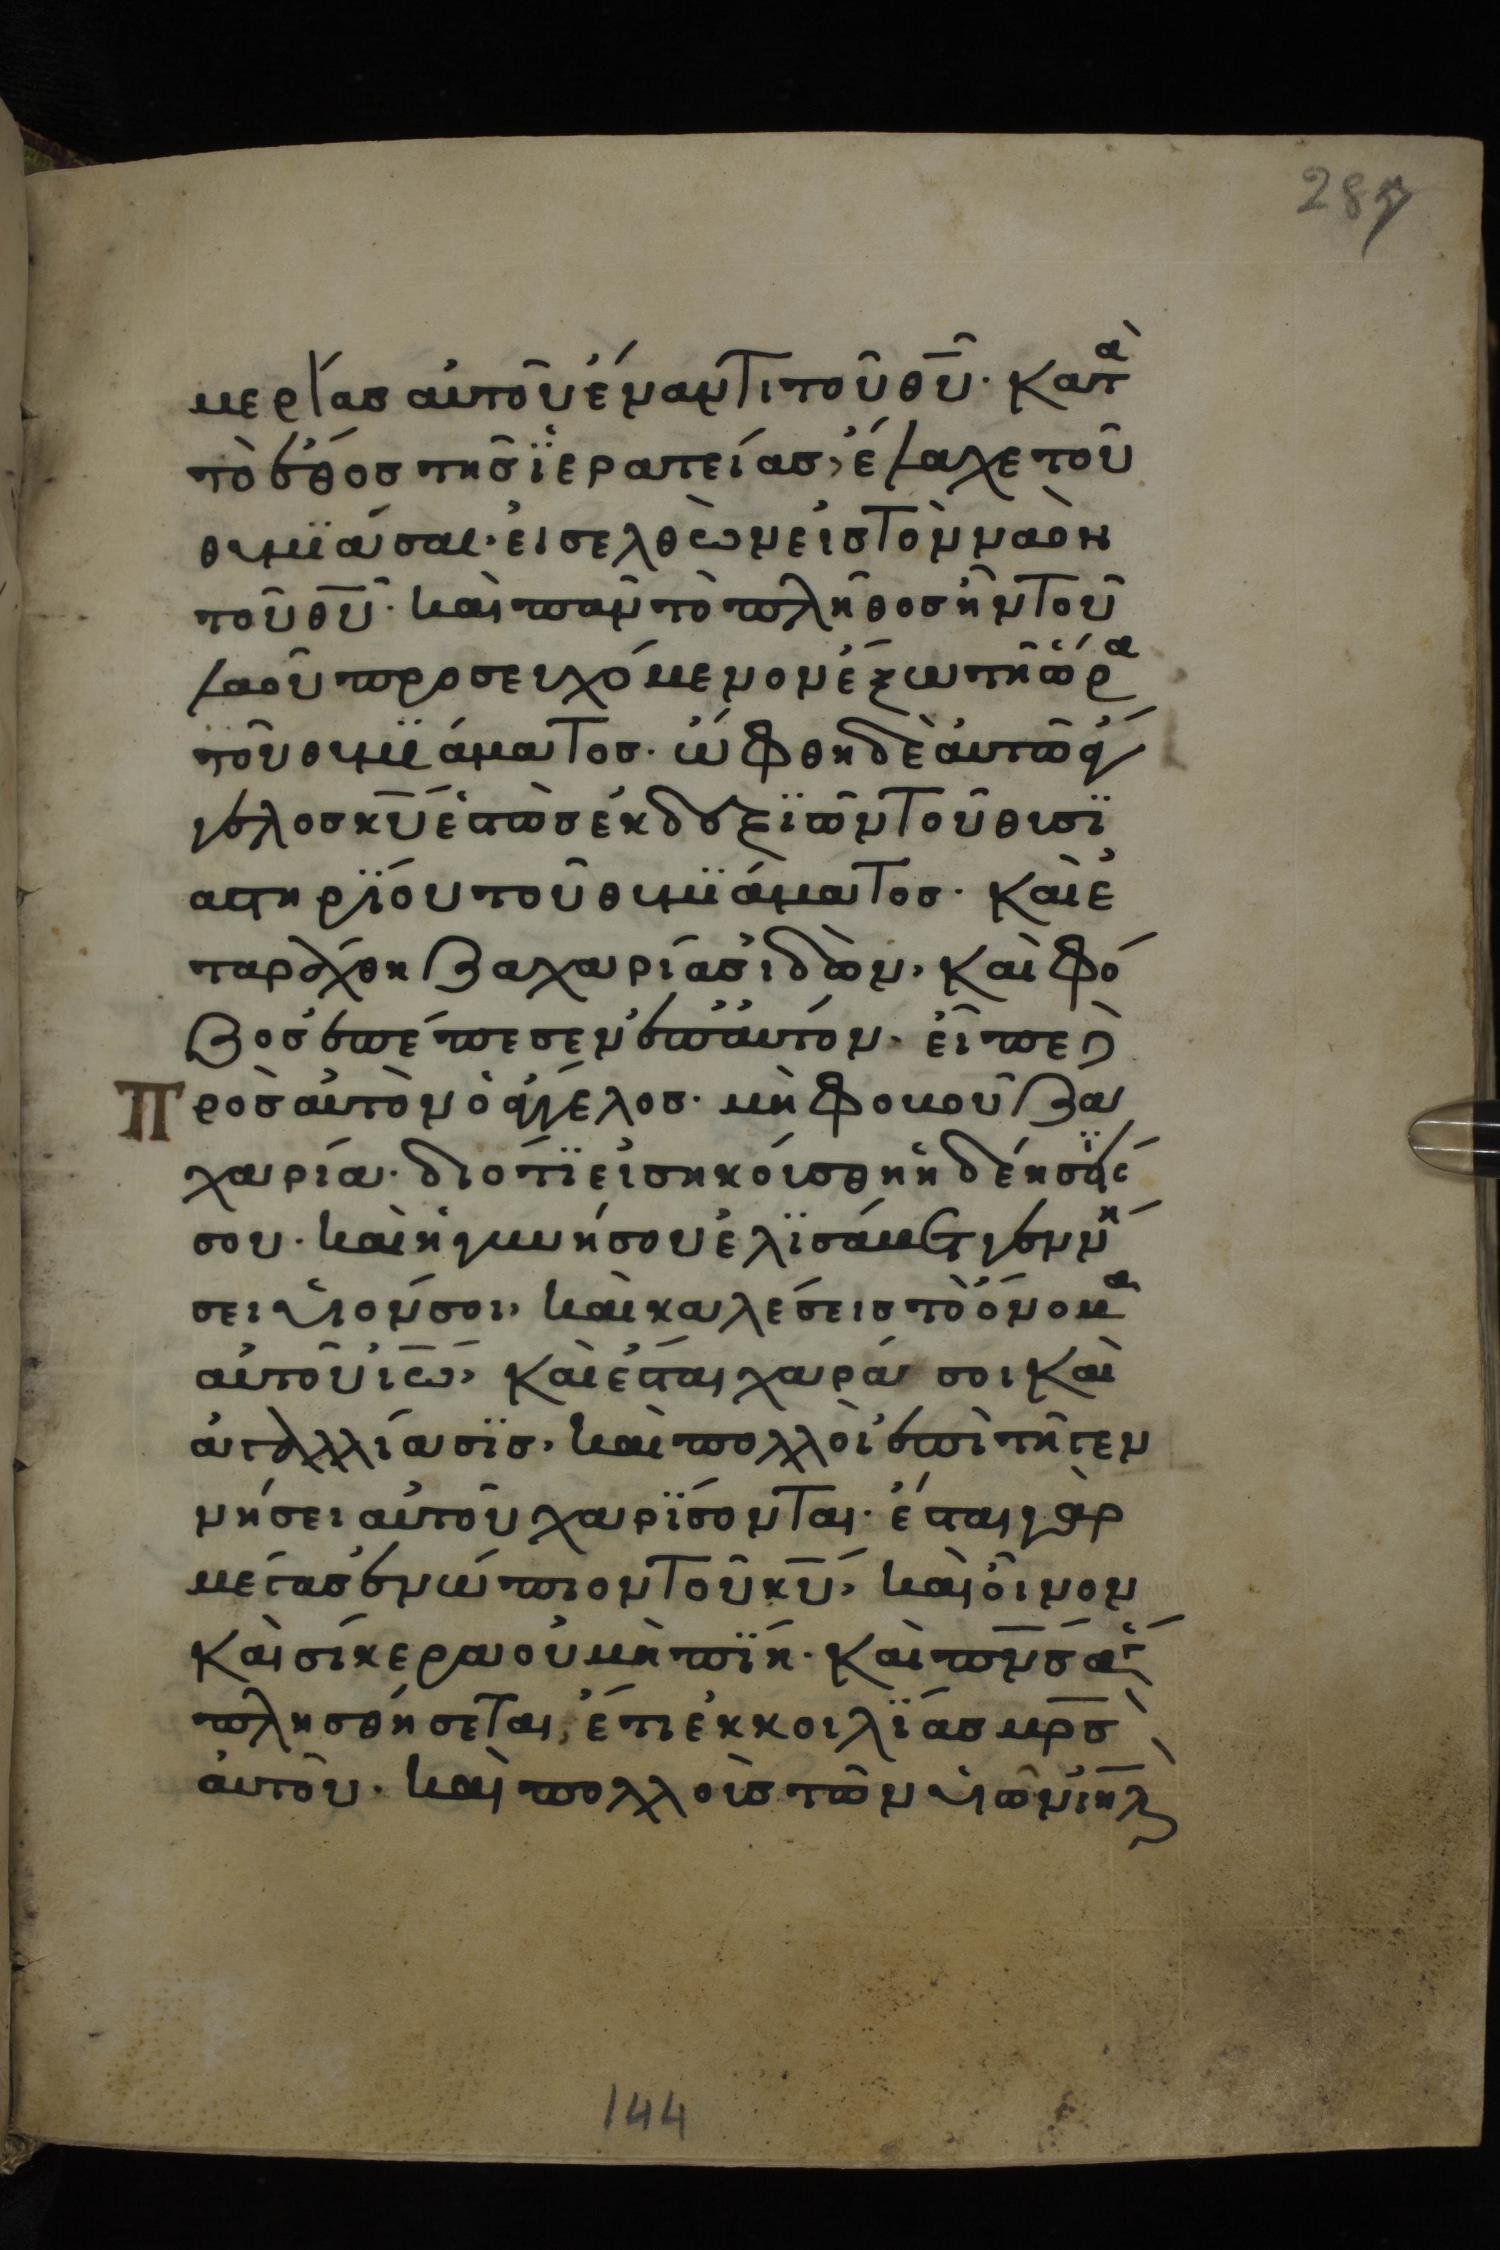 287
μερίας αὐτοῦ ἔναντι τοῦ θ̅υ̅· κατὰ
τὸ ἔθος τῆς ἱερατείας, ἔλαχε τοῦ
θυμϊάσαι· εἰσελθὼν εἰς τὸν ναὸν
τοῦ θ̅υ̅· καὶ πᾶν τὸ πλῆθος ἦν τοῦ
λαοῦ προσευχόμενον ἔξω τῆ ὥρα
τοῦ θυμϊάματος· ὤφθη δὲ αὐτῶ ἄγ
γελος κ̅υ̅ ἑστὼς ἐκ δεξϊῶν τοῦ θυσϊ
αστηρϊου τοῦ θυμϊάματος· καὶ ἐ
ταράχθη ζαχαρίας ἰδὼν, καὶ φό
βος ἐπέπεσεν ἐπ' αὐτόν· εἶπε δ
πρὸς αὐτὸν ὁ ἄγγελος· μὴ φοβοῦ ζα
χαρία· διότϊ εἰσηκούσθη ἡ δέησϊς
σου· καὶ ἡ γυνή σου ἐλϊσάβετ γεννή
σει υἱόν σοι, καὶ καλέσεις τὸ ὄνομα
αὐτοῦ ἰ̅ω̅, καὶ ἔσται χαρά σοι καὶ
ἀγαλλίασϊς, καὶ πολλοὶ ἐπὶ τῆ γεν
νήσει αὐτοῦ χαρϊσονται· ἔσται γὰρ
μέγας ἐνώπιον τοῦ κ̅υ̅, καὶ οἶνον
καὶ σίκερα οὐ μὴ πϊη· καὶ π̅ν̅ς ἁγ
πλησθήσεται, ἔτι ἐκ κοιλϊας μ̅ρ̅ς
αὐτοῦ· καὶ πολλοὺς τῶν υἱῶν ι̅η̅λ
144